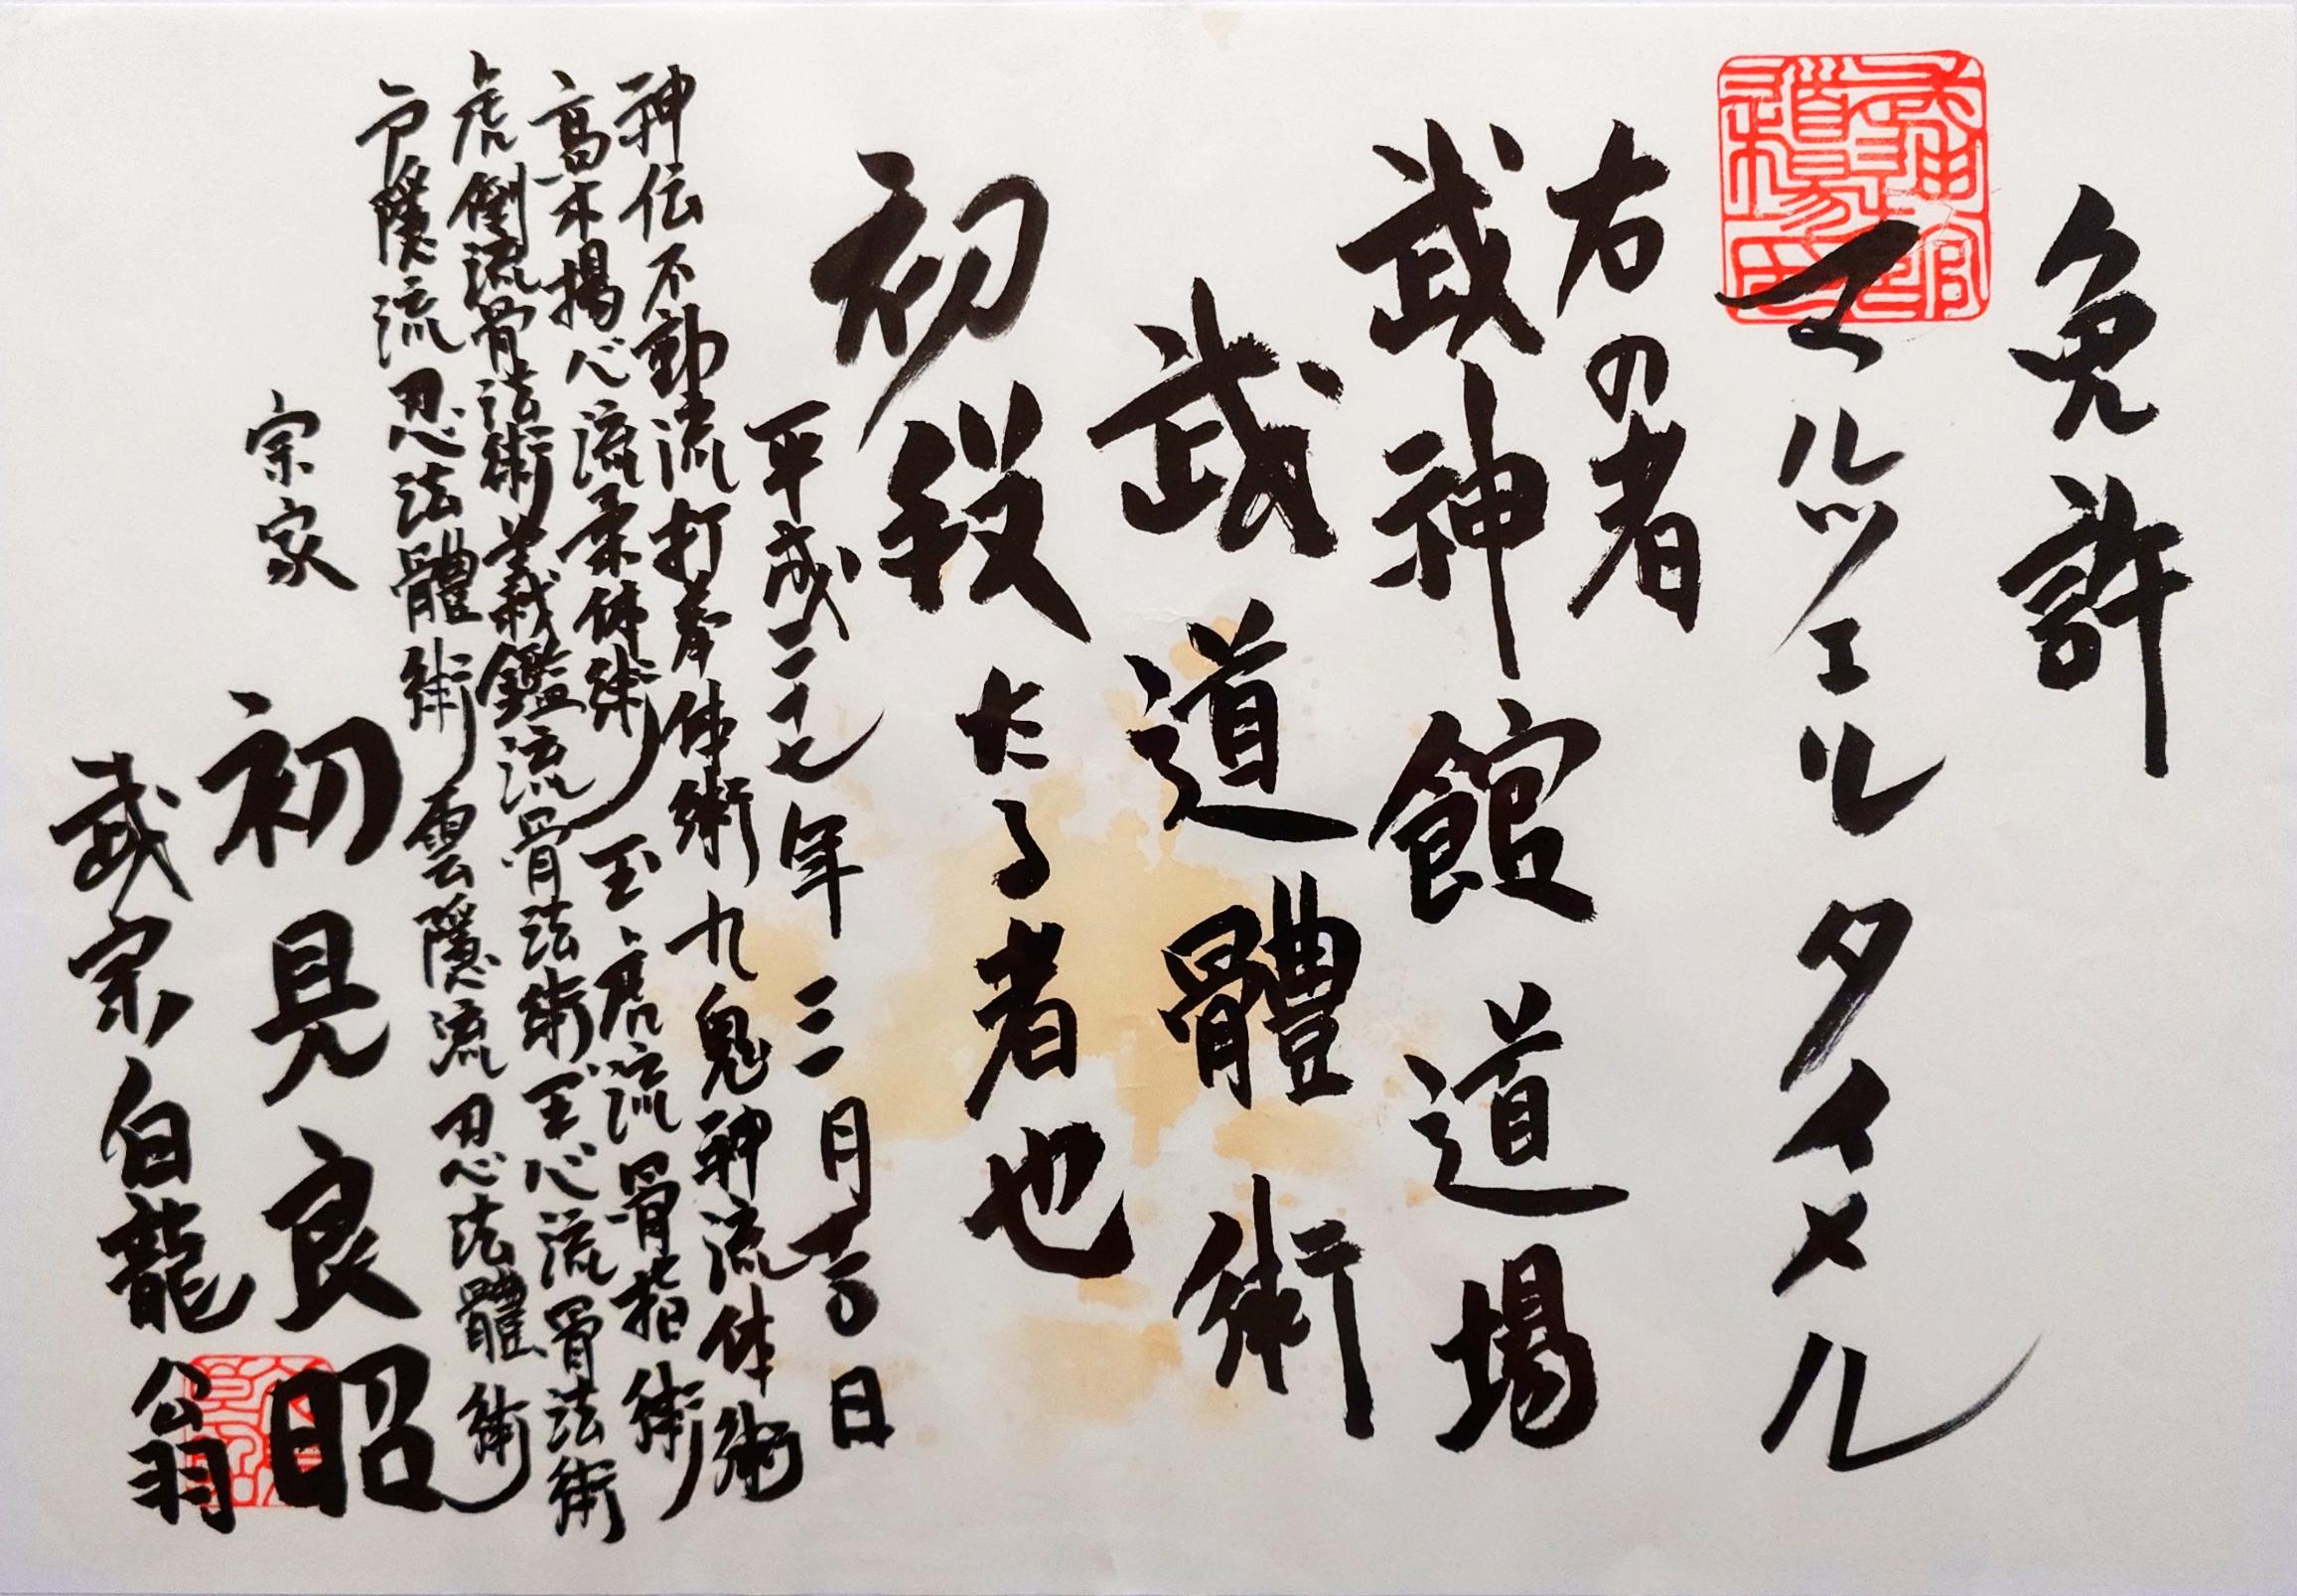 免許
マルツェルタイメル
右の者
武神館道場
武道體術
初段たる者也
平成二十七年三月吉日
神伝不動流打拳体術九鬼神流体術
高木揚心流柔体術玉虎流骨指術
虎倒流骨法術義鑑流骨法術玉心流骨法術
戸隱流忍法體術雲隱流忍法體術
宗家
初見良昭
武宗白龍翁